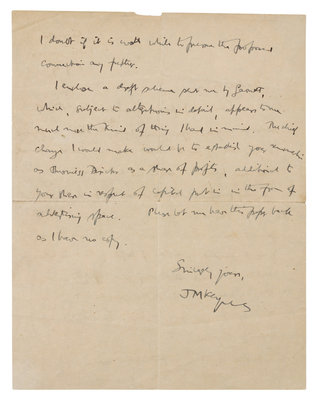 I doubt if it is worth while to pursue the proposed
connection any further.
I enclose a draft scheme sent me by Garnett,
which, subject to alterations in detail, appears to me
much the kind of thing I had in mind. The chief
change I would make would be to establish your
as Business Director as a share of profits, additional to
your share in respect of capital put in in the form of
advertising space. Please let me have this paper back
as I have no copy.
Sincerely yours,
JMKeynes